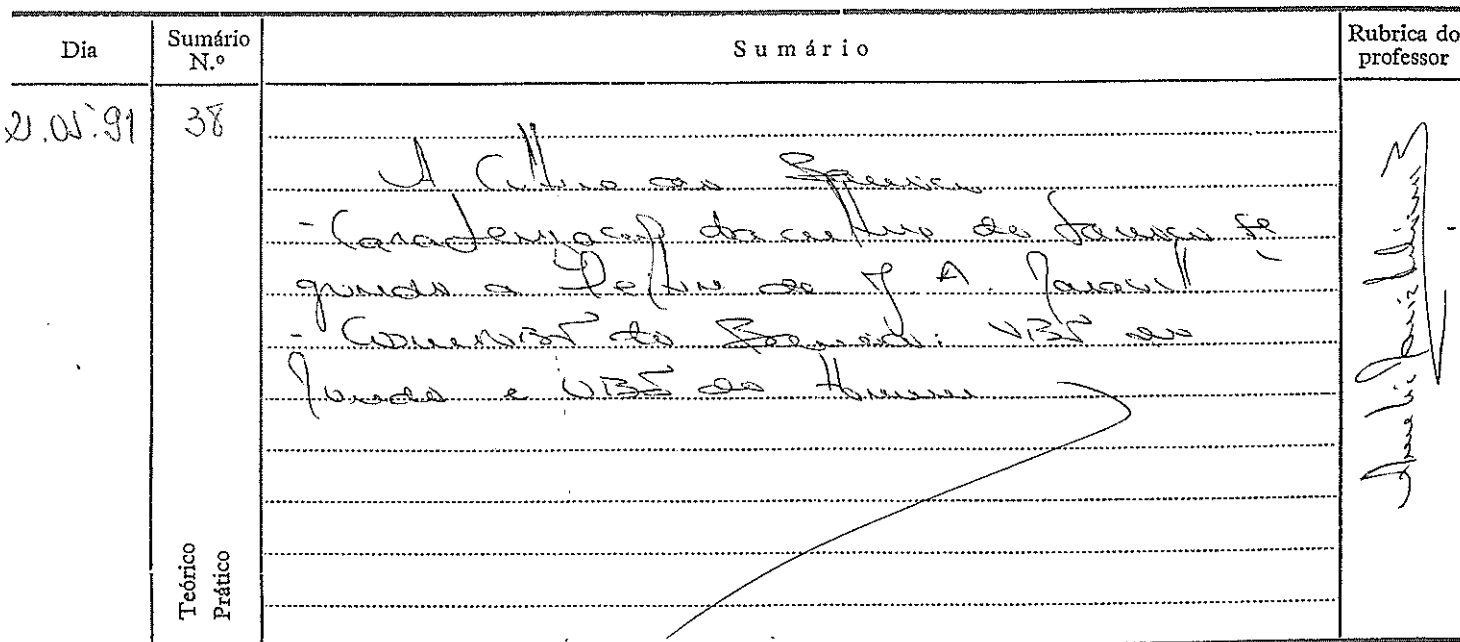 Dia
Sumário N.º
Sumário
Rubrica do professor
21.05.91
38
A Cultura do Barroco
- Caracterização da cultura do barroco se
gundo a leitura de J. A. Maravall
- do Barroco: do
Mundo e do Homem
Teórico
Prático